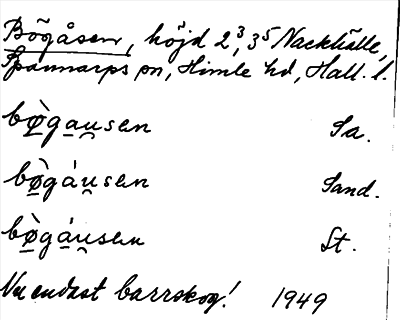 Bögåsen, höjd 2³, 3⁵ Nackhälle,
Spannarps sn, Himle hd, Hall. l.
bø̲̀gau̯sen Sa.
bø̲̀gáu̯sen Sand.
bø̲̀gáu̯sen St.
Nu endast barrskog! 1949